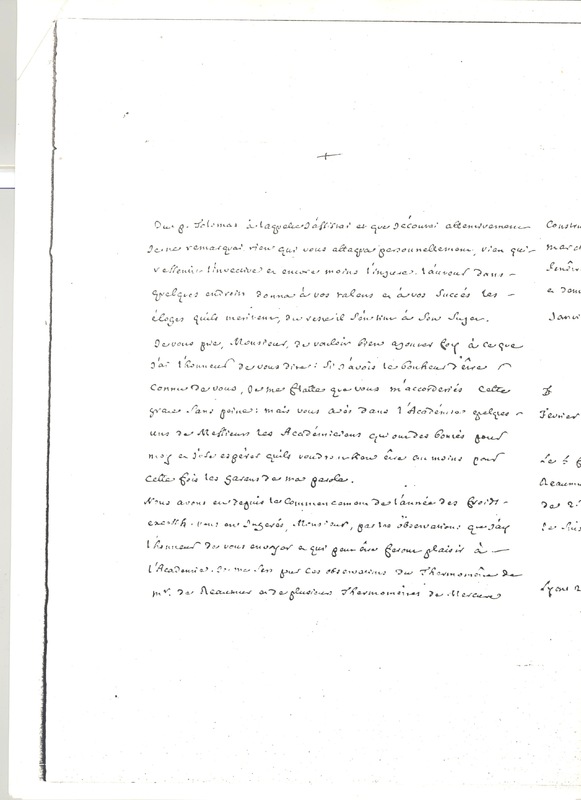 Du p. Tolomas à laquelle J'assistai et que J'écoutai attentivement
Je ne remarquai rien qui vous attaqua personnellement, rien qui
l'invective et encore moins l'injure. l'auteur dans
quelques endroits donna à vos talens et à vos succès les
éloges qu'ils meritent, à son sujet.
Je vous prie, Monsieur, de vouloir bien ajouter foy à ce que
J'ai l'honneur de vous dire: Si J'avois le bonheur d'être
connu de vous, Je me flatte que vous m'accorderiés cette
grace sans peine: mais vous avés dans l'Académie quelques
uns de Messieurs les Académiciens qui ont des bontés pour
moy et J'ose espérer qu'ils voudront bien être au moins pour
cette fois les garens de ma parole.
Nous avons eu depuis le commencement de l'année des froids
excessifs. vous en Jugerés, Monsieur, par les observations que J'ay
l'honneur de vous envoyer et qui peut être feront plaisir à
l'Académie. Je me sers pour ces observations du Thermomètre de
mr. de Reaumur et de plusieurs Thermomètres de Mercure
Constru
march
et dont
Janvi
Février
Le
Reaumur
de 2
Lyons 2